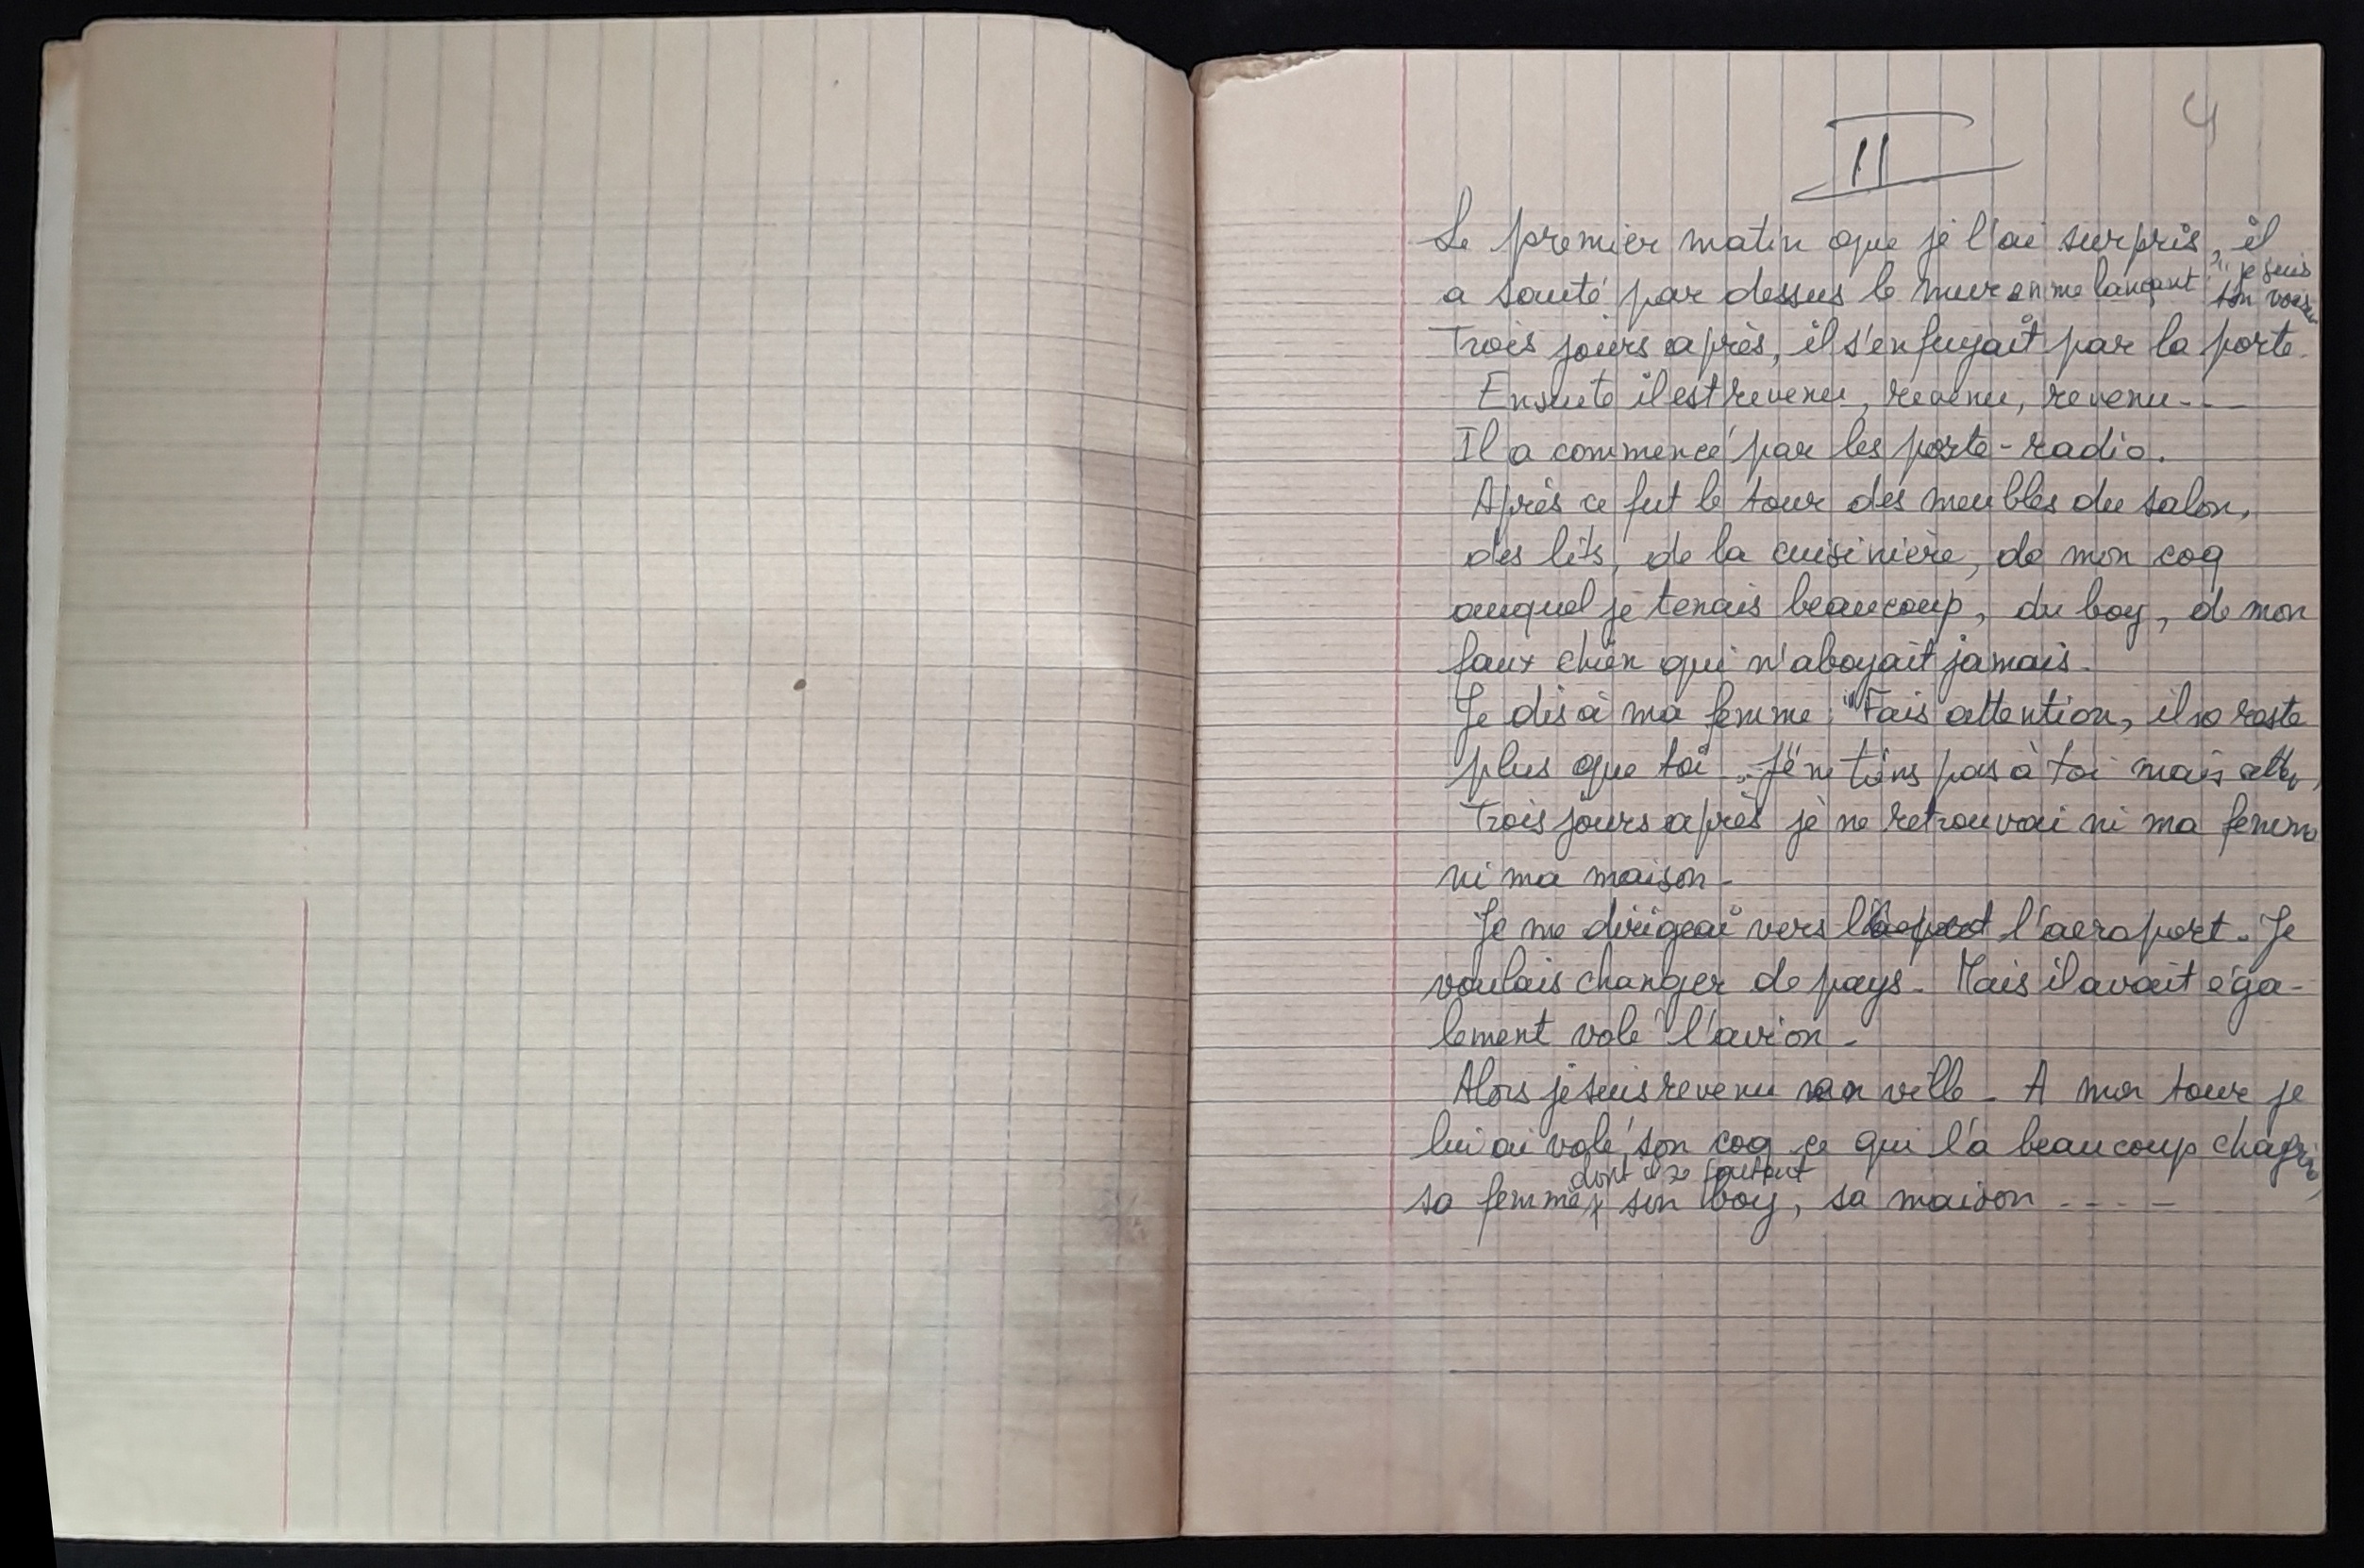 4
II
Le premier matin que je l'ai surpris, il
a sauté par dessus le mur en me lançant : "je suis
ton voisin
Trois jours après, il s'enfuyait par la porte.
Ensuite il est revenu, revenu, revenu...
Il a commencé par les porte-radio.
Après ce fut le tour des meubles du salon,
des lits, de la cuisinière, de mon coq
auquel je tenais beaucoup, du boy, de mon
faux chien qui n'aboyait jamais.
Je dis à ma femme : "Fais attention, il ne reste
plus que toi. Je ne tiens pas à toi mais
Trois jours après je ne retrouvai ni ma femme
ni ma maison.
Je me dirigeai vers l'aeroport. Je
voulais changer de pays. Mais il avait éga-
lement volé l'avion.
Alors je suis revenu en ville. A mon tour je
lui ai volé son coq ce qui l'a beaucoup
dont il se foutait
sa femme, son boy, sa maison ....